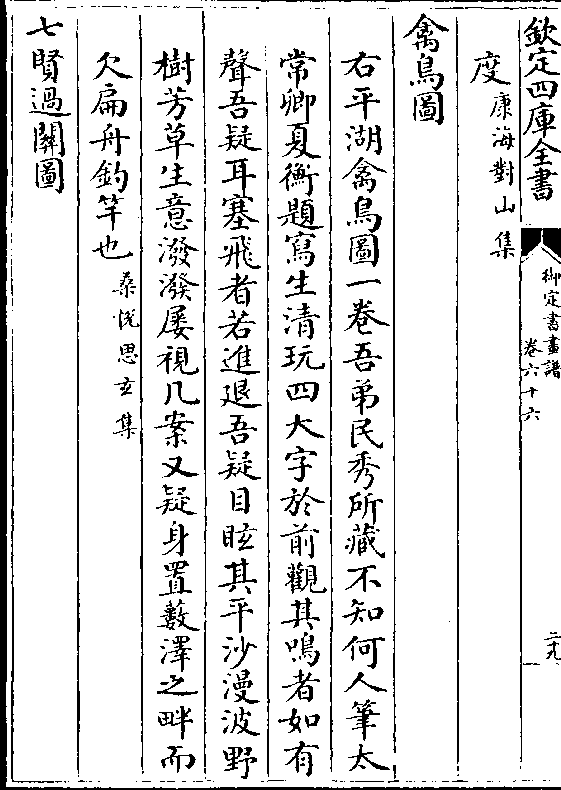 欽定四庫全書
御定書畫譜
卷六十六
二十九
度康海對山集
禽鳥圖
右平湖禽鳥圖一卷吾弟民秀所藏不知何人筆太
常卿夏衡題寫生清玩四大字於前觀其鳴者如有
聲吾疑耳塞飛者若進退吾疑目眩其平沙漫波野
樹芳草生意潑潑屢視几案又疑身置藪澤之畔而
欠扁舟釣竿也桑悅思玄集
七賢過關圖